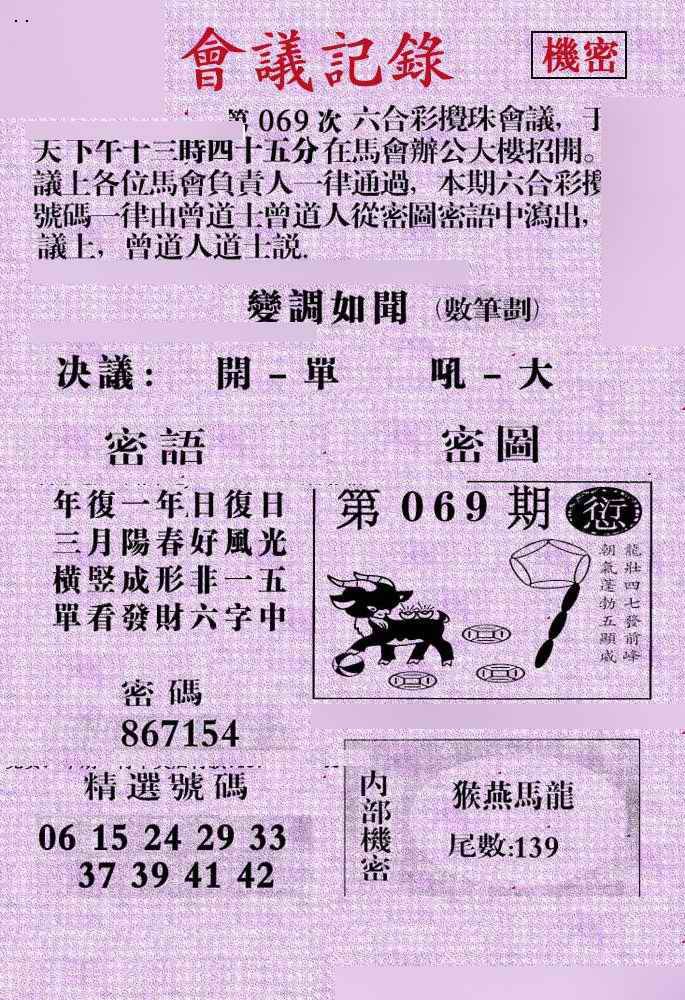 會議記錄
機密
第 069 次 六合彩攪珠會議,
天下午十三時四十五分在馬會辦公大樓招開。
議上各位馬會負責人一律通過, 本期六合彩攪
號碼一律由曾道士曾道人從密圖密語中瀉出,
議上, 曾道人道士説.
變調如聞 (數筆劃)
决議: 開 - 單 吼 - 大
密語
年復一年日復日
三月陽春好風光
橫竪成形非一五
單看發財六字中
密圖
第 069 期
龍壯四七發前峰
朝氣蓬勃五顯威
密碼
867154
精選號碼
06 15 24 29 33
37 39 41 42
内部機密
猴燕馬龍
尾數:139